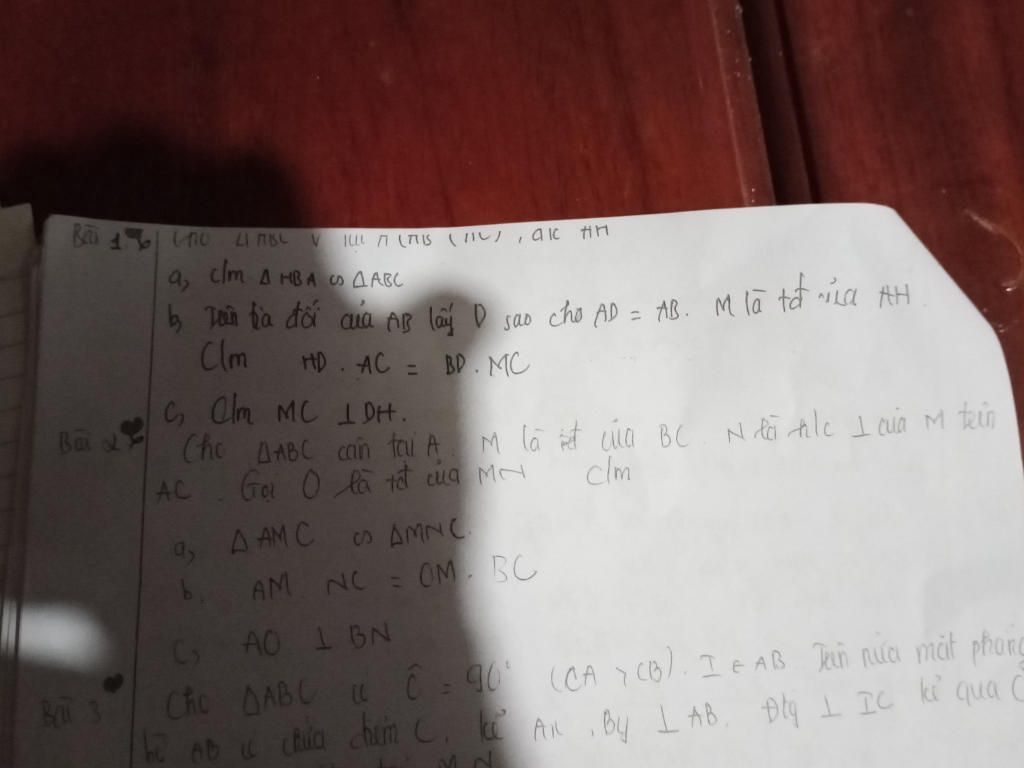 Bài 1
a, c/m Δ HBA ∽ ΔABC
b, Trên tia đối của AB lấy D sao cho AD = AB. M là tđ của AH.
C/m HD . AC = BD . MC
c, C/m MC ⊥ DH.
Bài 2 Cho ΔABC cân tại A. M là tđ của BC. N là h/c ⊥ của M trên
AC. Gọi O là tđ của MN C/m
a, Δ AMC ∽ ΔMNC.
b, AM NC = OM . BC
c, AO ⊥ BN
Bài 3 Cho ΔABC có Ĉ = 90° (CA > CB). I ∈ AB Trên nửa mặt phẳng
bờ AB có chứa điểm C, kẻ Ax, By ⊥ AB. Đtg ⊥ IC kẻ qua C
M N